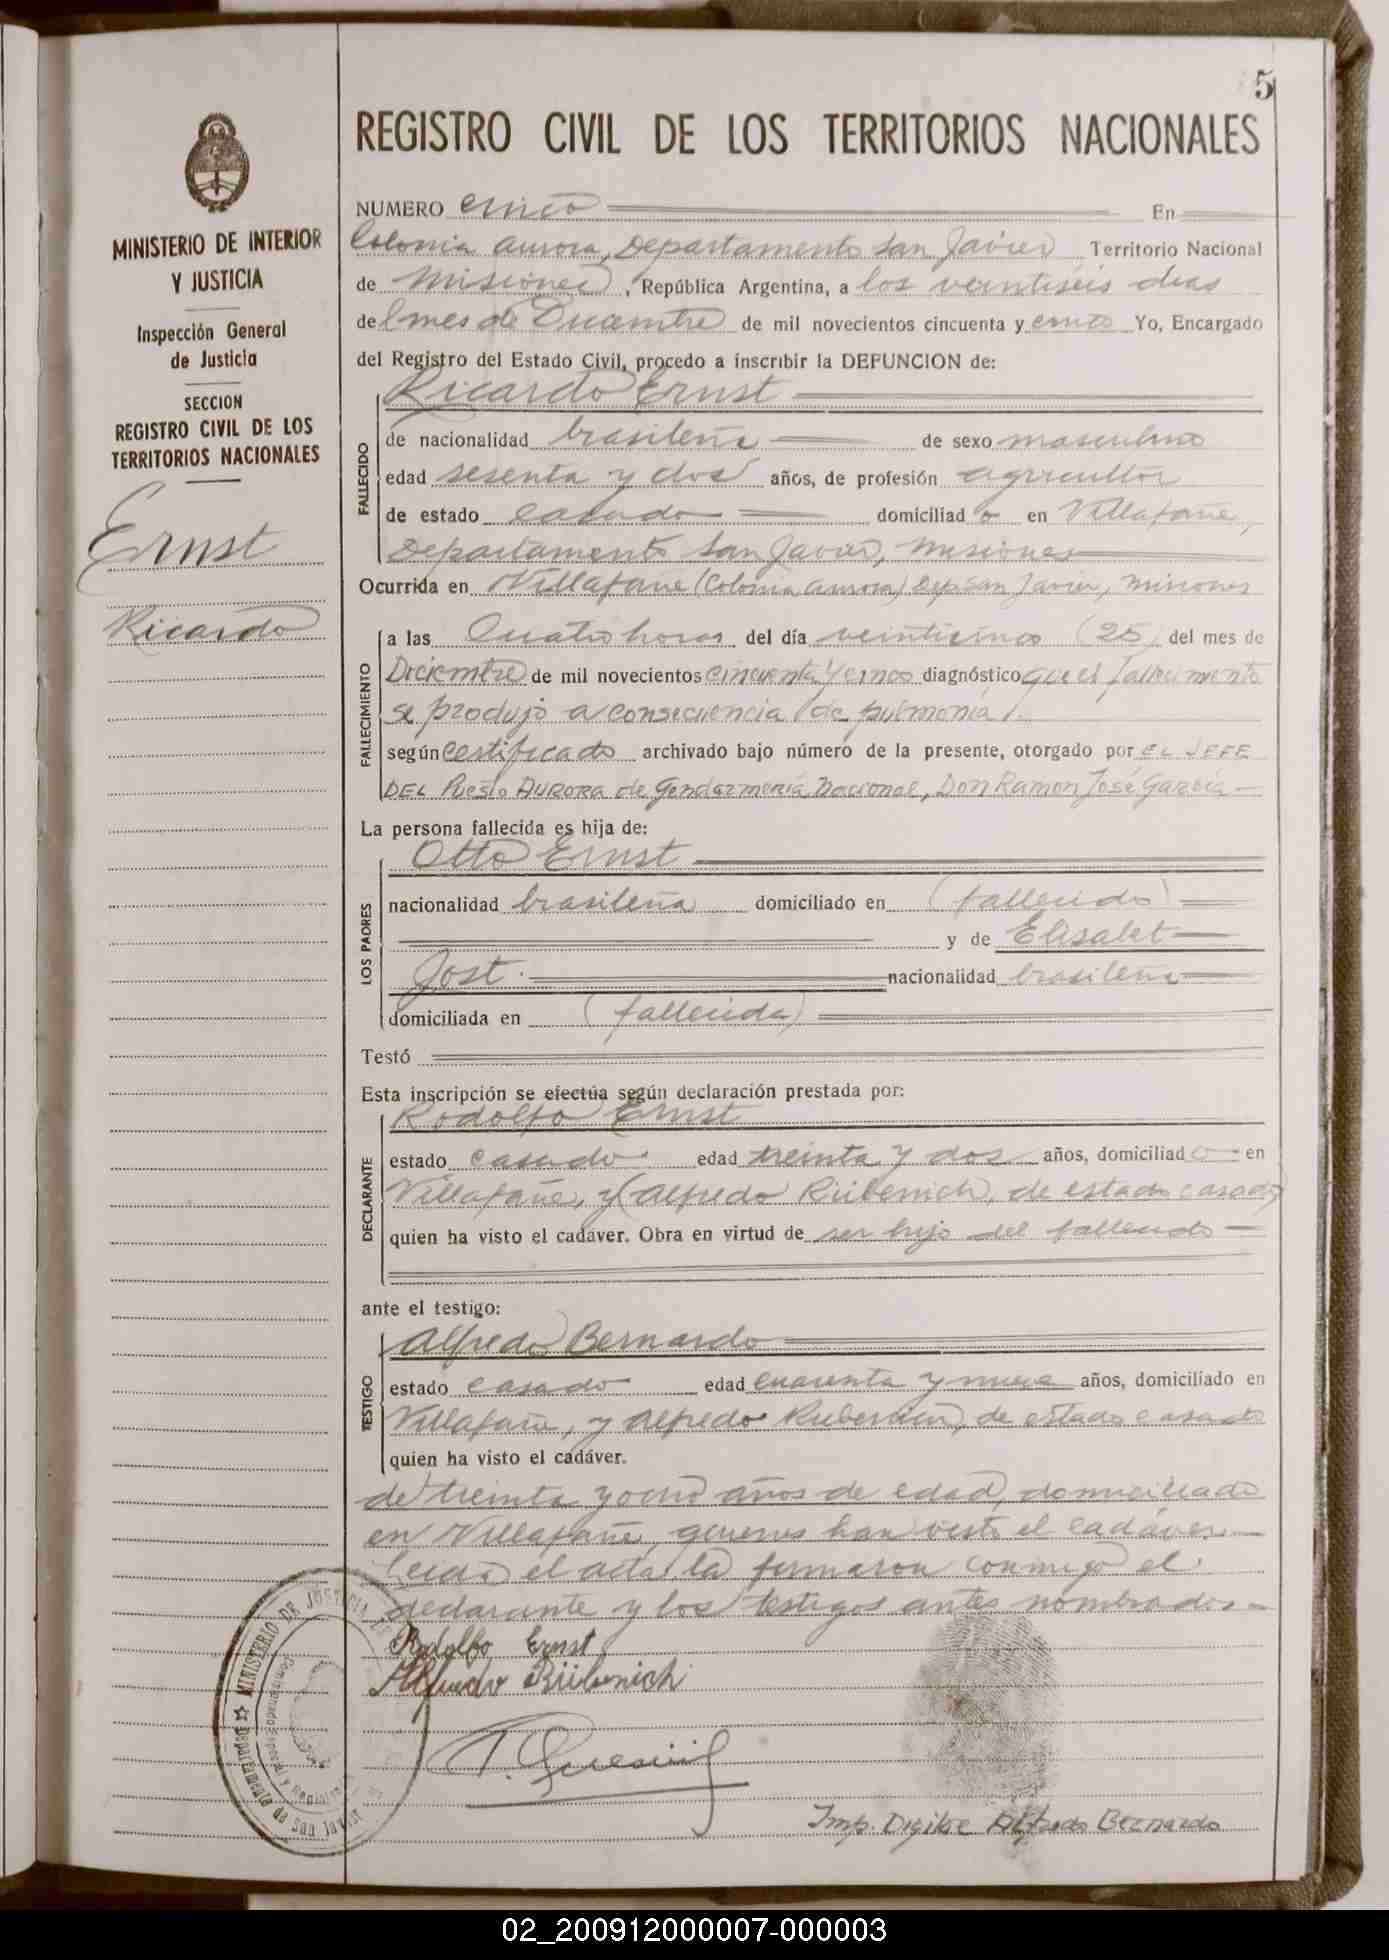 5
REGISTRO CIVIL DE LOS TERRITORIOS NACIONALES
MINISTERIO DE INTERIOR
Y JUSTICIA
Inspección General
de Justicia
SECCION
REGISTRO CIVIL DE LOS
TERRITORIOS NACIONALES
Ernst
Ricardo
NUMERO cinco En
Colonia Aurora, Departamento San Javier Territorio Nacional
de Misiones, República Argentina, a los veintiséis dias
del mes de Diciembre de mil novecientos cincuenta y cinco Yo, Encargado
del Registro del Estado Civil, procedo a inscribir la DEFUNCION de:
Ricardo Ernst
FALLECIDO
de nacionalidad brasileña de sexo masculino
edad sesenta y dos años, de profesión agricultor
de estado casado domiciliado en Villafañe,
Departamento San Javier, Misiones
Ocurrida en Villafañe (Colonia Aurora) Dep. San Javier, Misiones
FALLECIMIENTO
a las Cuatro horas del día veinticinco (25) del mes de
Diciembre de mil novecientos cincuenta y cinco diagnóstico que el fallecimiento
se produjo a consecuencia de pulmonía.
según certificado archivado bajo número de la presente, otorgado por EL JEFE
DEL Puesto AURORA de Gendarmería Nacional, Don Ramon José García
La persona fallecida es hija de:
Otto Ernst
LOS PADRES
nacionalidad brasileña domiciliado en (fallecido)
y de Elisabet
Jost. nacionalidad brasileña
domiciliada en (fallecida)
Testó
Esta inscripción se efectúa según declaración prestada por:
Rodolfo Ernst
DECLARANTE
estado casado edad treinta y dos años, domiciliado en
Villafañe, y (Alfredo Rübenich, de estado casado)
quien ha visto el cadáver. Obra en virtud de ser hijo del fallecido
ante el testigo:
Alfredo Bernardo
TESTIGO
estado casado edad cuarenta y nueve años, domiciliado en
Villafañe, y Alfredo Rubenich, de estado casado
quien ha visto el cadáver.
de treinta y ocho años de edad, domiciliado
en Villafañe, quienes han visto el cadáver.
Leida el acta, la firmaron conmigo el
declarante y los testigos antes nombrados.
Rodolfo Ernst
Alfredo Rübenich
MINISTERIO DE JUSTICIA
Departamento de San Javier
Imp. Digital Alfredo Bernardo
02_200912000007-000003